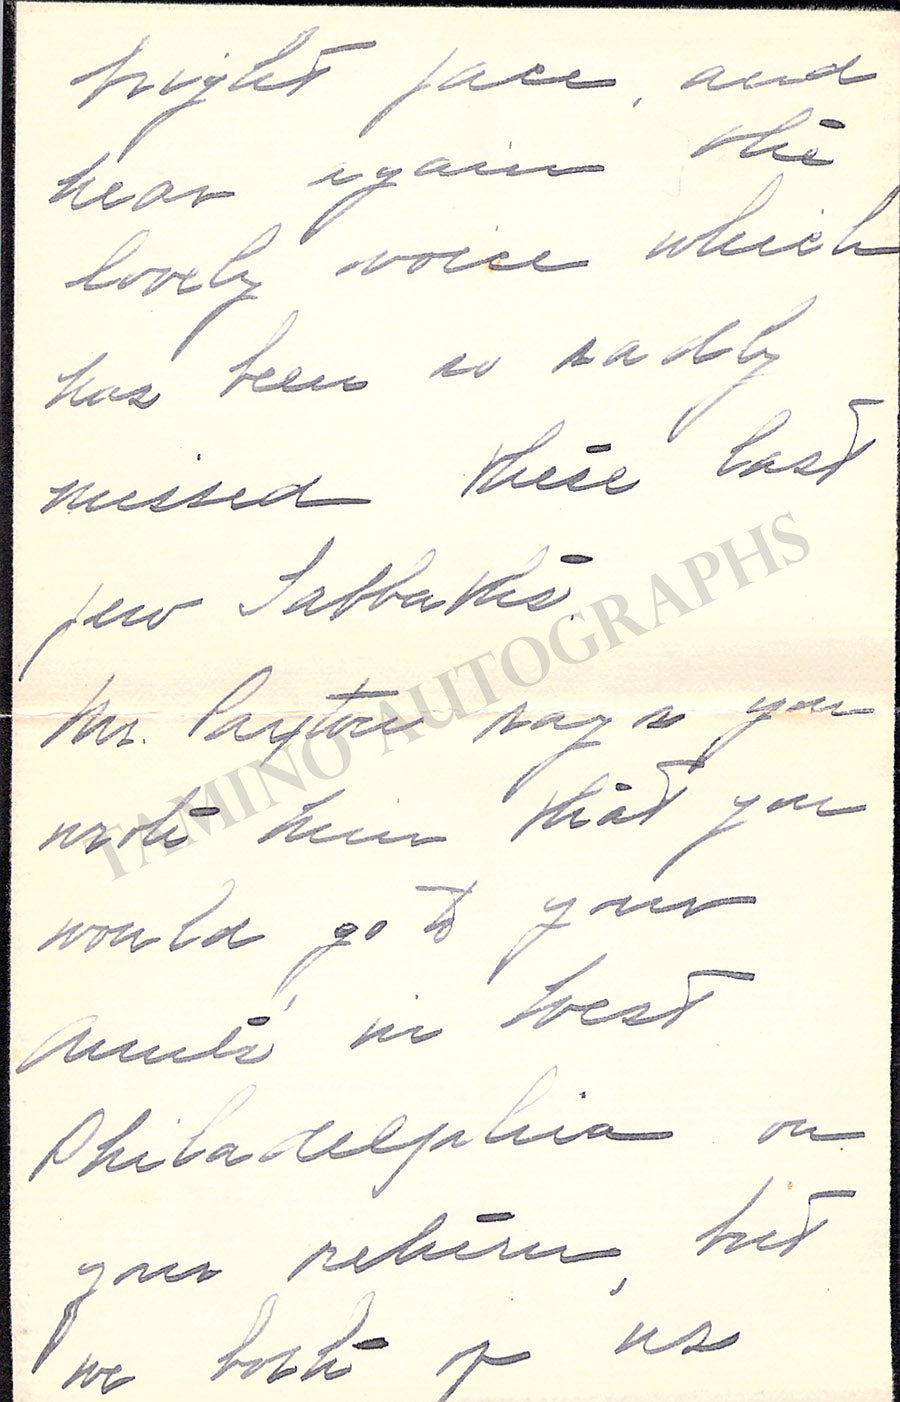 bright face, and
hear again the
lovely voice which
has been so sadly
missed these last
few Sabbaths.
Mr. Paxton says you
wrote him that you
would go to your
Aunts' in West
Philadelphia on
your return, but
we both of us
TAMINO AUTOGRAPHS